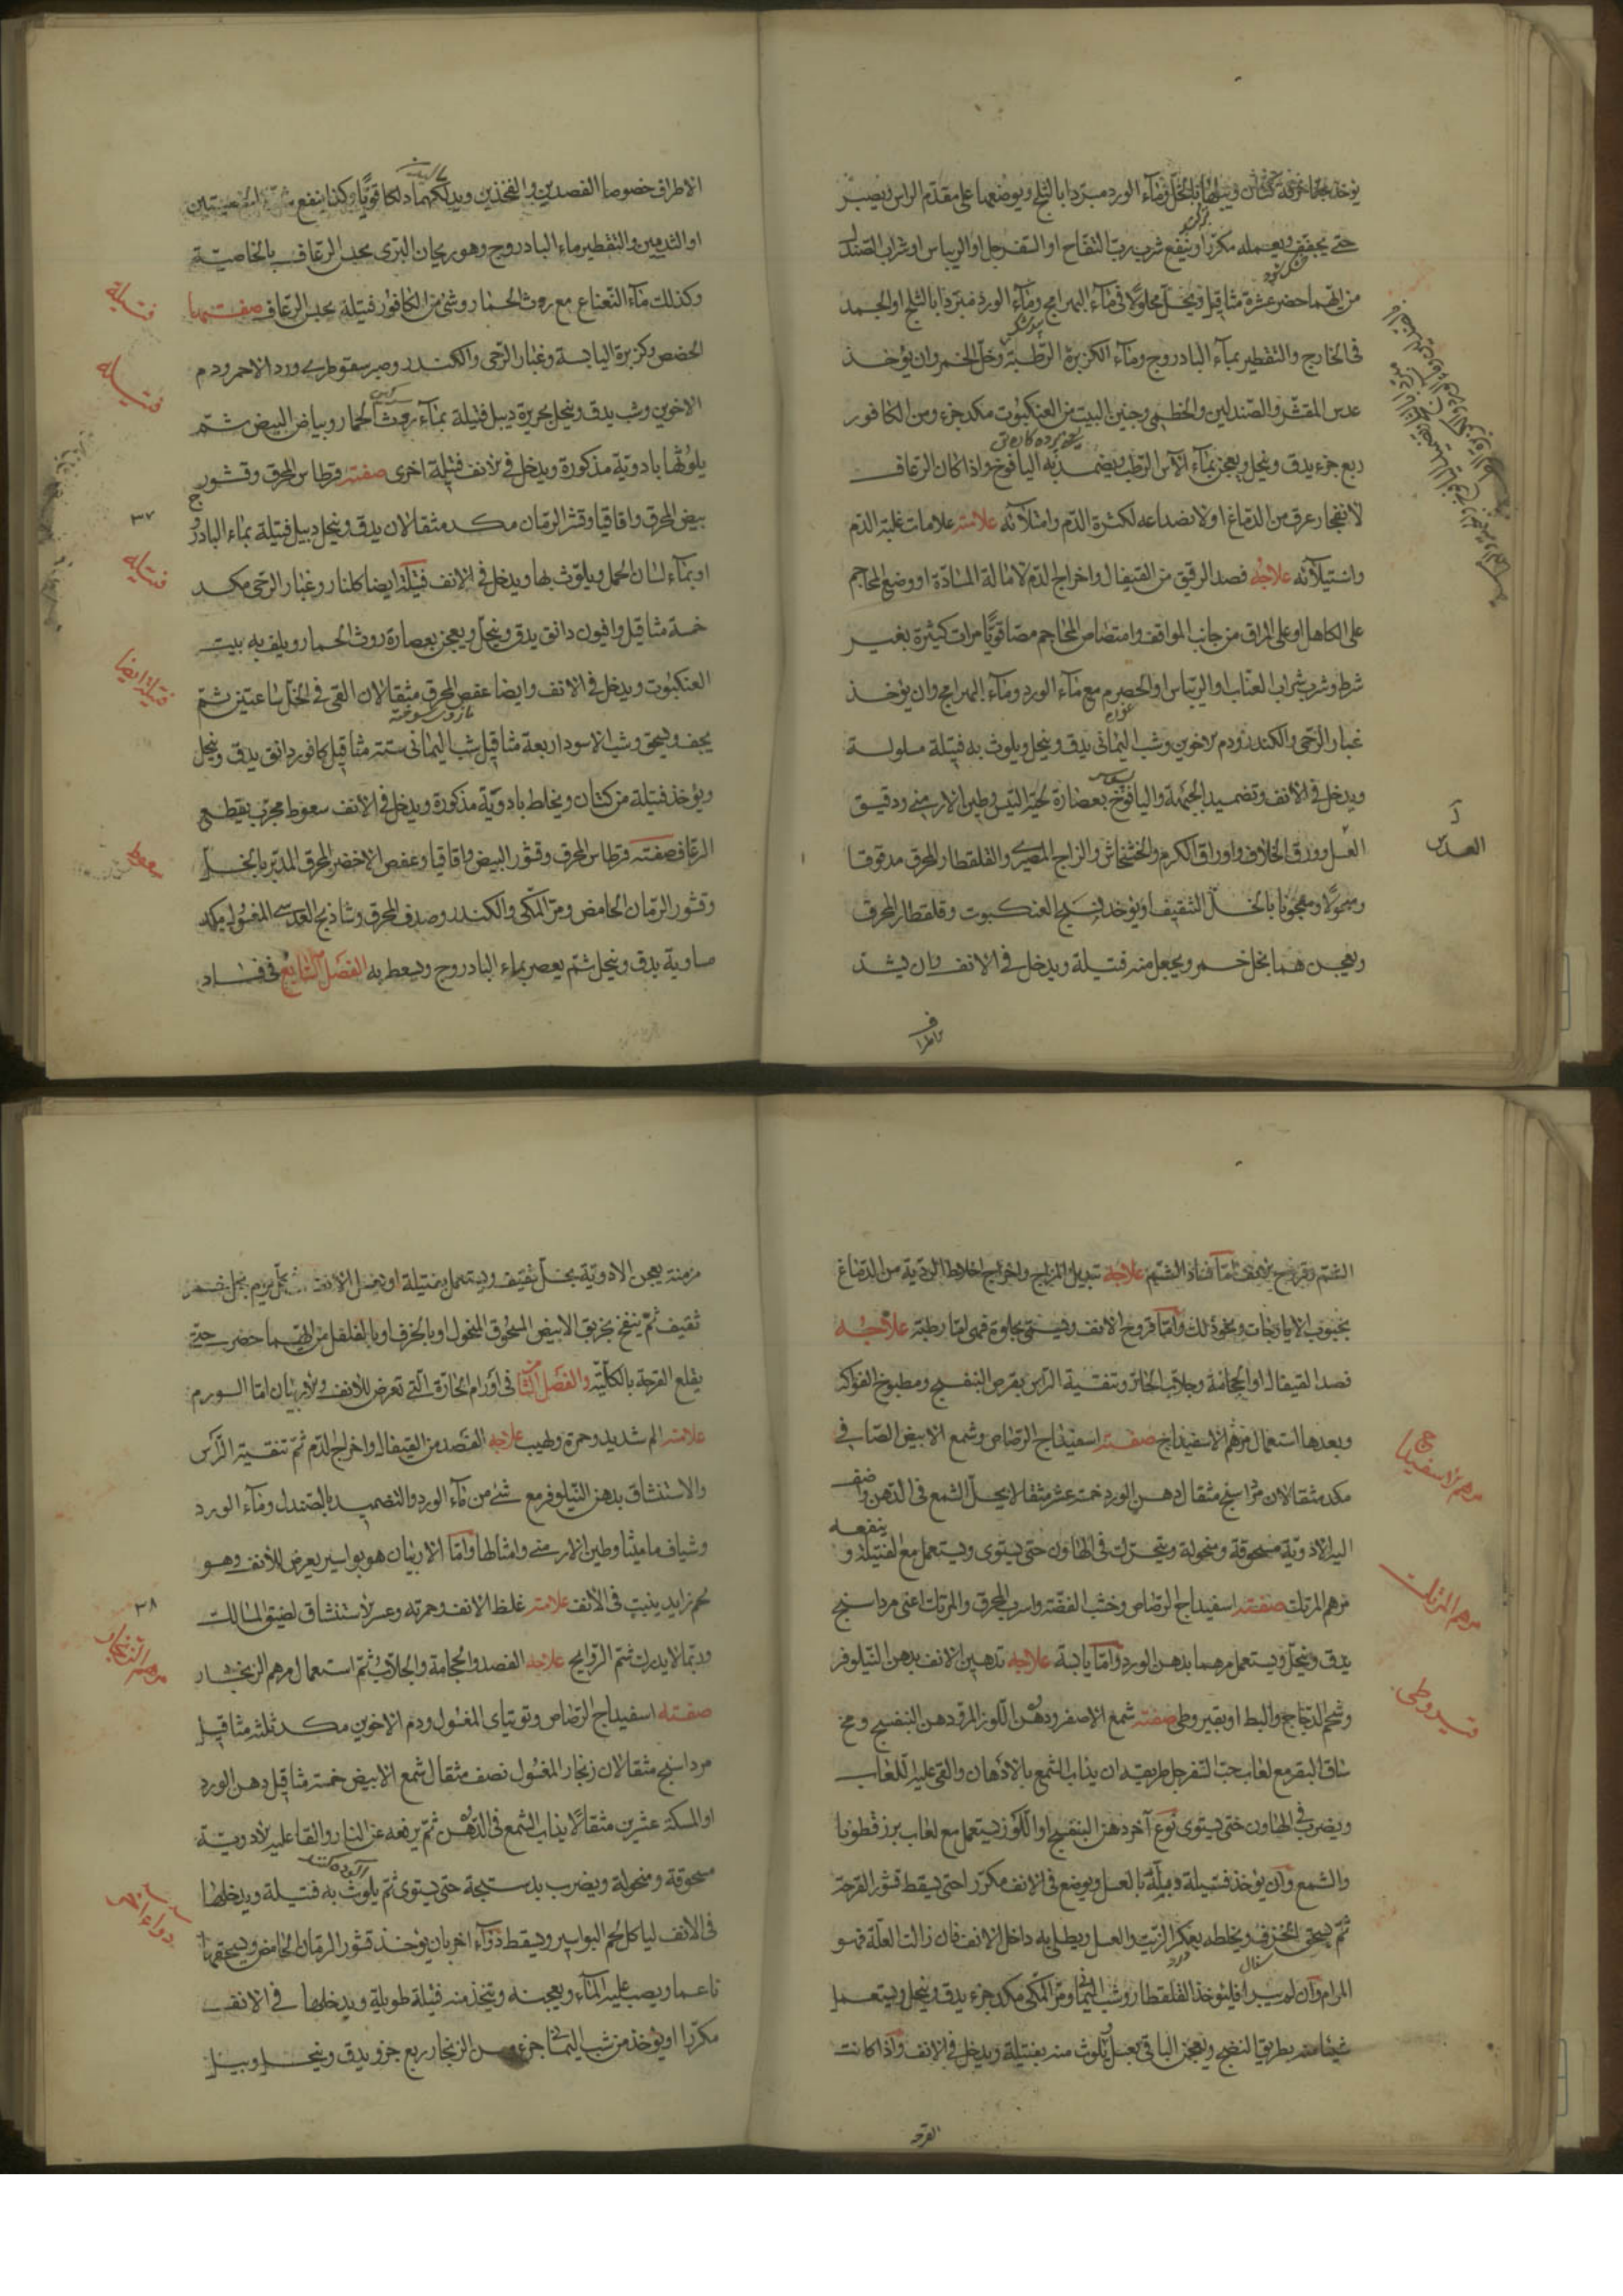 يوخذ بخرقة كتان ويبلها بالخل وماء الورد مبردا بالثلج ويوضعها على مقدم الراس ويصبر
حتى يجفف ويعمله مكررا وينفع شرب رب التفاح او السفرجل او الريباس او شراب الصندل
من ايهما حضر عشرة مثاقيل ويخل محلولا فى ماء البهرامج وماء الورد مبردا بالثلج او الجمد
فى الخارج والتقطير بماء البادروج وماء الكزبرة الرطبة وخل الخمر وان يؤخذ
عدس المقشر والصندلين والخطمى وجنين البيت من العنكبوت مكد جزء ومن الكافور
ربع جزء يدق وينخل ويعجن بماء الآس الرطب ويضمد به اليافوخ واذا كان الرعاف
لانفجار عرق من الدماغ او لانصداعه لكثرة الدم وامتلآئه علامته علامات غلبة الدم
واستيلآئه علاجه فصد الرقيق من القيفال واخراج الدم لامالة المادة او وضع المحاجم
على الكاهل او على المراق من جانب المواقف وامتصاص المحاجم مصا قويا مرات كثيرة بغير
شرط وشرب شراب العناب او الريباس او الحصرم مع ماء الورد وماء البهرامج وان يؤخذ
غبار الرحى والكندر ودم الاخوين وشب اليمانى يدق وينخل ويلوث به فتيلة مبلولة
ويدخل فى الانف وتضميد الجبهة واليافوخ بعصارة لحية التيس وطين الارمنى ودقيق
العدس
العسل وورق الخلاف واوراق الكرم والخشخاش والزاج المصرى والقلقطار المحرق مدقوقا
ومنخولا ومعجونا بالخل الثقيف او يؤخذ نسج العنكبوت وقلقطار المحرق
ويعجن هما بخل خمر ويجعل منه فتيلة ويدخل فى الانف وان يشد
الاطراف
الاطراف خصوصا العضدين والفخذين ويدلكهما دلكا قويا وكذا ينفع
او الثديين والتقطير ماء البادروج وهو ريحان البرى يحبس الرعاف بالخاصية
وكذلك ماء النعناع مع روث الحمار وشئ من الكافور فتيلة يحبس الرعاف صفتها
فتيلة
الحضض وكزبرة اليابسة وغبار الرحى والكندر وصبر سقوطرى ورد الاحمر ودم
فتيلة
الاخوين وشب يدق وينخل بحريرة ويبل فتيلة بماء روث الحمار وبياض البيض ثم
يلوثها بادوية مذكورة ويدخل فى الانف فتيلة اخرى صفته قرطاس المحرق وقشور
بيض المحرق واقاقيا وقشر الرمان مكد مثقالان يدق وينخل ويبل فتيلة بماء البادروج
٣٧
او بماء لسان الحمل ويلوث بها ويدخل فى الانف فتيلة ايضا كلنار وغبار الرحى مكد
فتيله
خمسة مثاقيل وافيون دانق يدق وينخل ويعجن بعصارة روث الحمار ويلف به بيت
العنكبوت ويدخل فى الانف وايضا عفص المحرق مثقالان القى فى الخل ساعتين ثم
فتيلة ايضا
يجفف ويسحق وشب الاسود اربعة مثاقيل شب اليمانى ستة مثاقيل كافور دانق يدق وينخل
ويؤخذ فتيلة من كتان ويخلط بادوية مذكورة ويدخل فى الانف سعوط مجرب يقطع
الرعاف صفته قرطاس المحرق وقشور البيض واقاقيا وعفص الاخضر المحرق المدبر بالخل
سعوط
وقشور الرمان الحامض ومر المكى والكندر وصدف المحرق وشاذنج العدسى المغسول مكد
مساوية يدق وينخل ثم يعصر بماء البادروج ويسعط به الفصل السابع فى فساد
الشم وقروح الانف اما فساد الشم علاجه تبديل المزاج واخراج اخلاط الردية من الدماغ
بحبوب الايارجات ونحو ذلك واما قروح الانف فهى اما رطبة علاجه
فصد القيفال او الحجامة وجلاب الخائر وتنقية الراس بقرص البنفسج ومطبوخ الفواكه
وبعدها استعمال مرهم الاسفيداج صفته اسفيداج الرصاص وشمع الابيض الصافى
مرهم الاسفيداج
مكد مثقالان مرداسنج مثقال دهن الورد خمسة عشر مثقالا يحل الشمع فى الدهن واضف
اليه الادوية مسحوقة ومنخولة ويتحرك فى الهاون حتى يستوى ويستعمل مع الفتيلة و ينفعه
مرهم المرتك صفته اسفيداج الرصاص وخبث الفضة واسرب المحرق والمرتك اعنى مرداسنج
مرهم المرتك
يدق وينخل ويستعمل مرهما بدهن الورد واما يابسة علاجه تدهين الانف بدهن النيلوفر
وشحم الدجاج والبط او بقيروطى صفته شمع الاصفر ودهن اللوز المر ودهن البنفسج ومخ
قيروطى
ساق البقر مع لعاب حب السفرجل طريقه ان يذاب الشمع بالادهان والقى عليه اللعاب
ويضرب فى الهاون حتى يستوى نوع آخر دهن البنفسج او اللوز يستعمل مع لعاب بزرقطونا
والشمع وان يؤخذ فتيلة ويبله بالعسل ويوضع فى الانف مكررا حتى يسقط قشور القرحة
ثم يسحق الخزف ويخلطه بعكر الزيت والعسل ويطلى به داخل الانف فان زالت العلة فهو
المرام وان لم يبرا فليؤخذ القلقطار وشب اليمانى ومر المكى مكد جزء يدق وينخل ويستعمل
شيئا منه بطريق النفخ ويعجن الباقى بعسل يلوث منه بفتيلة ويدخل فى الانف واذا كانت
القرحة
مزمنة يعجن الادوية بخل ثقيف ويستعمل بفتيلة او يغسل الانف
ثقيف ثم ينفخ بخربق الابيض المسحوق المنخول او بالحرف او بالفلفل من ايهما حضر حتى
يقلع القرحة بالكلية والفصل الثامن فى اورام الحارة التى تعرض للانف والاربيان اما الورم
علامته الم شديد وحمرة ولهيب علاجه الفصد من القيفال واخراج الدم ثم تنقية الراس
والاستنشاق بدهن النيلوفر مع شئ من ماء الورد والتضميد بالصندل وماء الورد
وشياف ماميثا وطين الارمنى وامثالها واما الاربيان هو بواسير يعرض للانف وهو
لحم زايد ينبت فى الانف علامته غلظ الانف وحمرته وعسر الاستنشاق لضيق المسالك
٣٨
وربما لا يدرك شم الروايح علاجه الفصد والحجامة والجلاب ثم استعمال مرهم الزنجار
مرهم الزنجار
صفته اسفيداج الرصاص وتوتياى المغسول ودم الاخوين مكد ثلثة مثاقيل
مرداسنج مثقالان زنجار المغسول نصف مثقال شمع الابيض خمسة مثاقيل دهن الورد
او المسكة عشرين مثقالا يذاب الشمع فى الدهن ثم يرفعه عن النار والقا عليه الادوية
مسحوقة ومنخولة ويضرب بدستجة حتى يستوى ثم يلوث به فتيلة ويدخلها
فى الانف لياكل لحم البواسير ويسقط دواء آخر بان يؤخذ قشور الرمان الحامض ويسحقها
ناعما ويصب عليه الماء ويعجنه ويتخذ منه فتيلة طويلة ويدخلها فى الانف
مكررا او يؤخذ من شب اليمانى جزء ومن الزنجار ربع جزو يدق وينخل ويبل